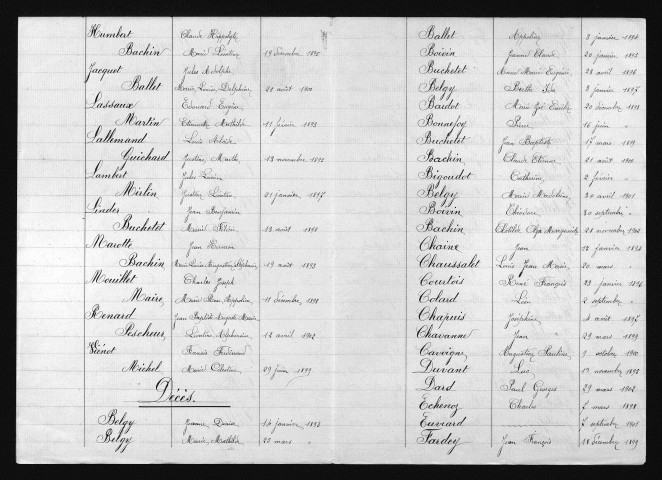 Humbert Claude Hippolyte
Bachin Marie Léontine 19 Décembre 1895
Jacquot Jules Adolphe
Ballet Marie Louise Delphine 21 août 1900
Lassaux Edouard Eugène
Martin Mathilde 11 février 1893
Lallemand Louis
Guichard Marthe 13 novembre 1892
Lambert Jules
Mislin Justine 21 janvier 1897
Linder Jean Benjamin
Buchelet Marie 13 août
Marotte Jean
Bachin Marie Louise Augustine 19 août 1893
Mouillet Charles Joseph
Maire Marie Rose Appoline 11 Décembre
Renard Jean Baptiste Marie
Pescheur Léontine Alphonsine 12 avril 1902
Viénot François Ferdinand
Michel Marie Célestine 29 juin 1899
Décès.
Belgy Jeanne 14 janvier 1893
Belgy Marie Mathilde 25 mars "
Ballet Appoline 3 janvier 1894
Boivin Jeanne Claude 20 janvier 1895
Buchelet Marie Eugénie 28 avril 1896
Belgy Berthe Ida 8 janvier 1897
Baudot Marie 20 décembre
Bonnefoy Pierre 16 juin "
Buchelet Jean Baptiste 17 mars 1899
Bachin Claude Etienne 21 août 1900
Bigoudot Catherine 2 février "
Belgy Marie Madeleine 30 avril 1901
Boivin Théodore 30 septembre "
Bachin Clotilde Marguerite 21 novembre 1902
Chaine Jean 12 janvier
Chaussalet Louis Jean Marie 20 mars "
Courtois René François 23 janvier 1896
Colard Léon 2 septembre "
Chapuis Joséphine 4 août 1897
Chavanne Jean 29 mars 1899
Caveigne Augustine Pauline 9 octobre 1900
Duvant Luc 19 novembre 1892
Dard Paul Georges 29 mars 1902
Echenoz Charles 7 mars 1898
Euvrard 7 septembre 1901
Fardey Jean François 18 Décembre 1899